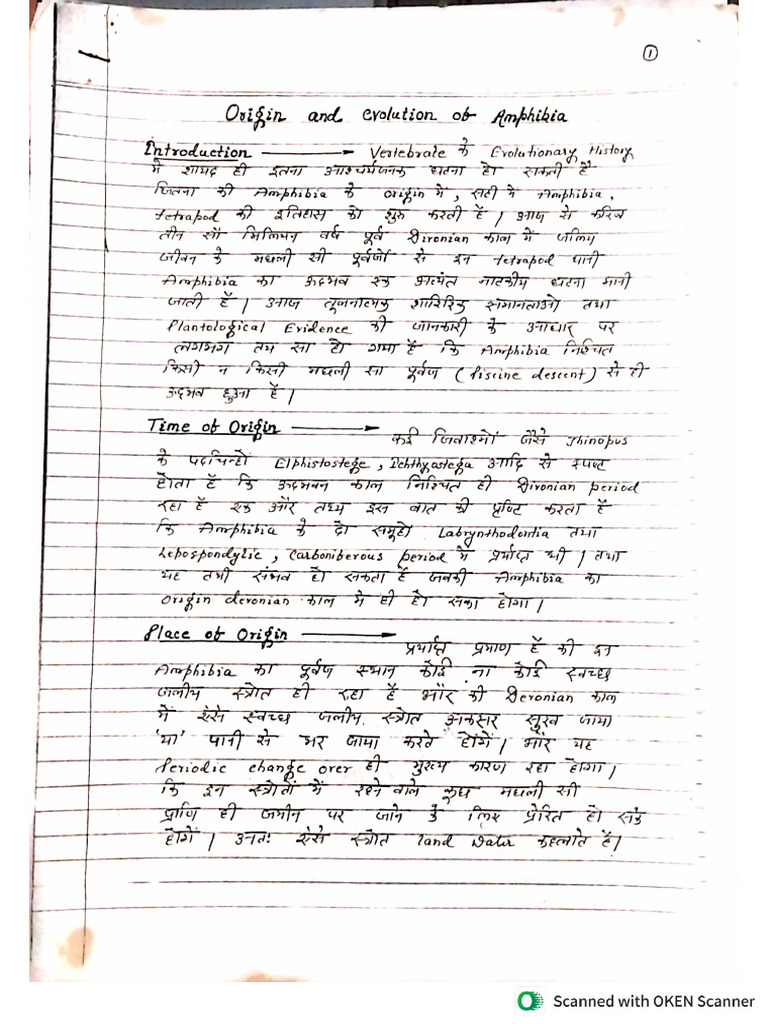 1
Origin and evolution of Amphibia
Introduction → Vertebrate के Evolutionary History
में शायद ही इतना आश्चर्यजनक घटना हो सकती है
जितना की Amphibia के origin में, सही में Amphibia,
tetrapod की इतिहास को शुरू करती हैं। आज से करिब
तीन सौ मिलियन वर्ष पूर्व Dironian काल में जलिय
जीवन के मछली सी पूर्वजों से इन tetrapod यानी
Amphibia का उदभव एक अत्यंत नाटकीय घटना मानी
जाती हैं। आज तूलनात्मक शारिरिक समानताओं तथा
Plantological Evidence की जानकारी के आधार पर
लगभग तय सा हो गया हैं कि Amphibia निश्चित
किसी न किसी मछली सा पूर्वज (Piscine descent) से ही
उदभव हुआ हैं।
Time of Origin → कई जिवाश्मों जैसे Thinopus
के पदचिन्हों Elphistostege, Ichthyastega आदि से स्पष्ट
होता हैं कि उदभवन काल निश्चित ही Dironian period
रहा हैं एक और तथ्य इस बात की पुष्टि करता हैं
कि Amphibia के दो समूहों Labrynthodontia तथा
Lepospondylic, Carboniberous period में प्रर्याप्त थी। तथा
यह तभी संभव हो सकता हैं जबकी Amphibia का
Origin devonian काल मे ही हो सका होगा।
Place of Origin → प्रर्याप्त प्रमाण हैं की इन
Amphibia का पूर्वज स्थान कोई ना कोई स्वच्छ
जलीय स्त्रोत ही रहा हैं और की Devonian काल
में ऐसे स्वच्छ जलीय स्त्रोत अकसार सुख जाया
'या' पानी से भर जाया करते होंगें। और यह
Periodic change over ही मुख्य कारण रहा होगा।
कि इन स्त्रोतों में रहने वाले कुछ मछली सी
प्राणि ही जमीन पर जाने के लिए प्रेरित हो सके
होगें। अतः ऐसे स्त्रोत land water कहलाते हैं।
Scanned with OKEN Scanner